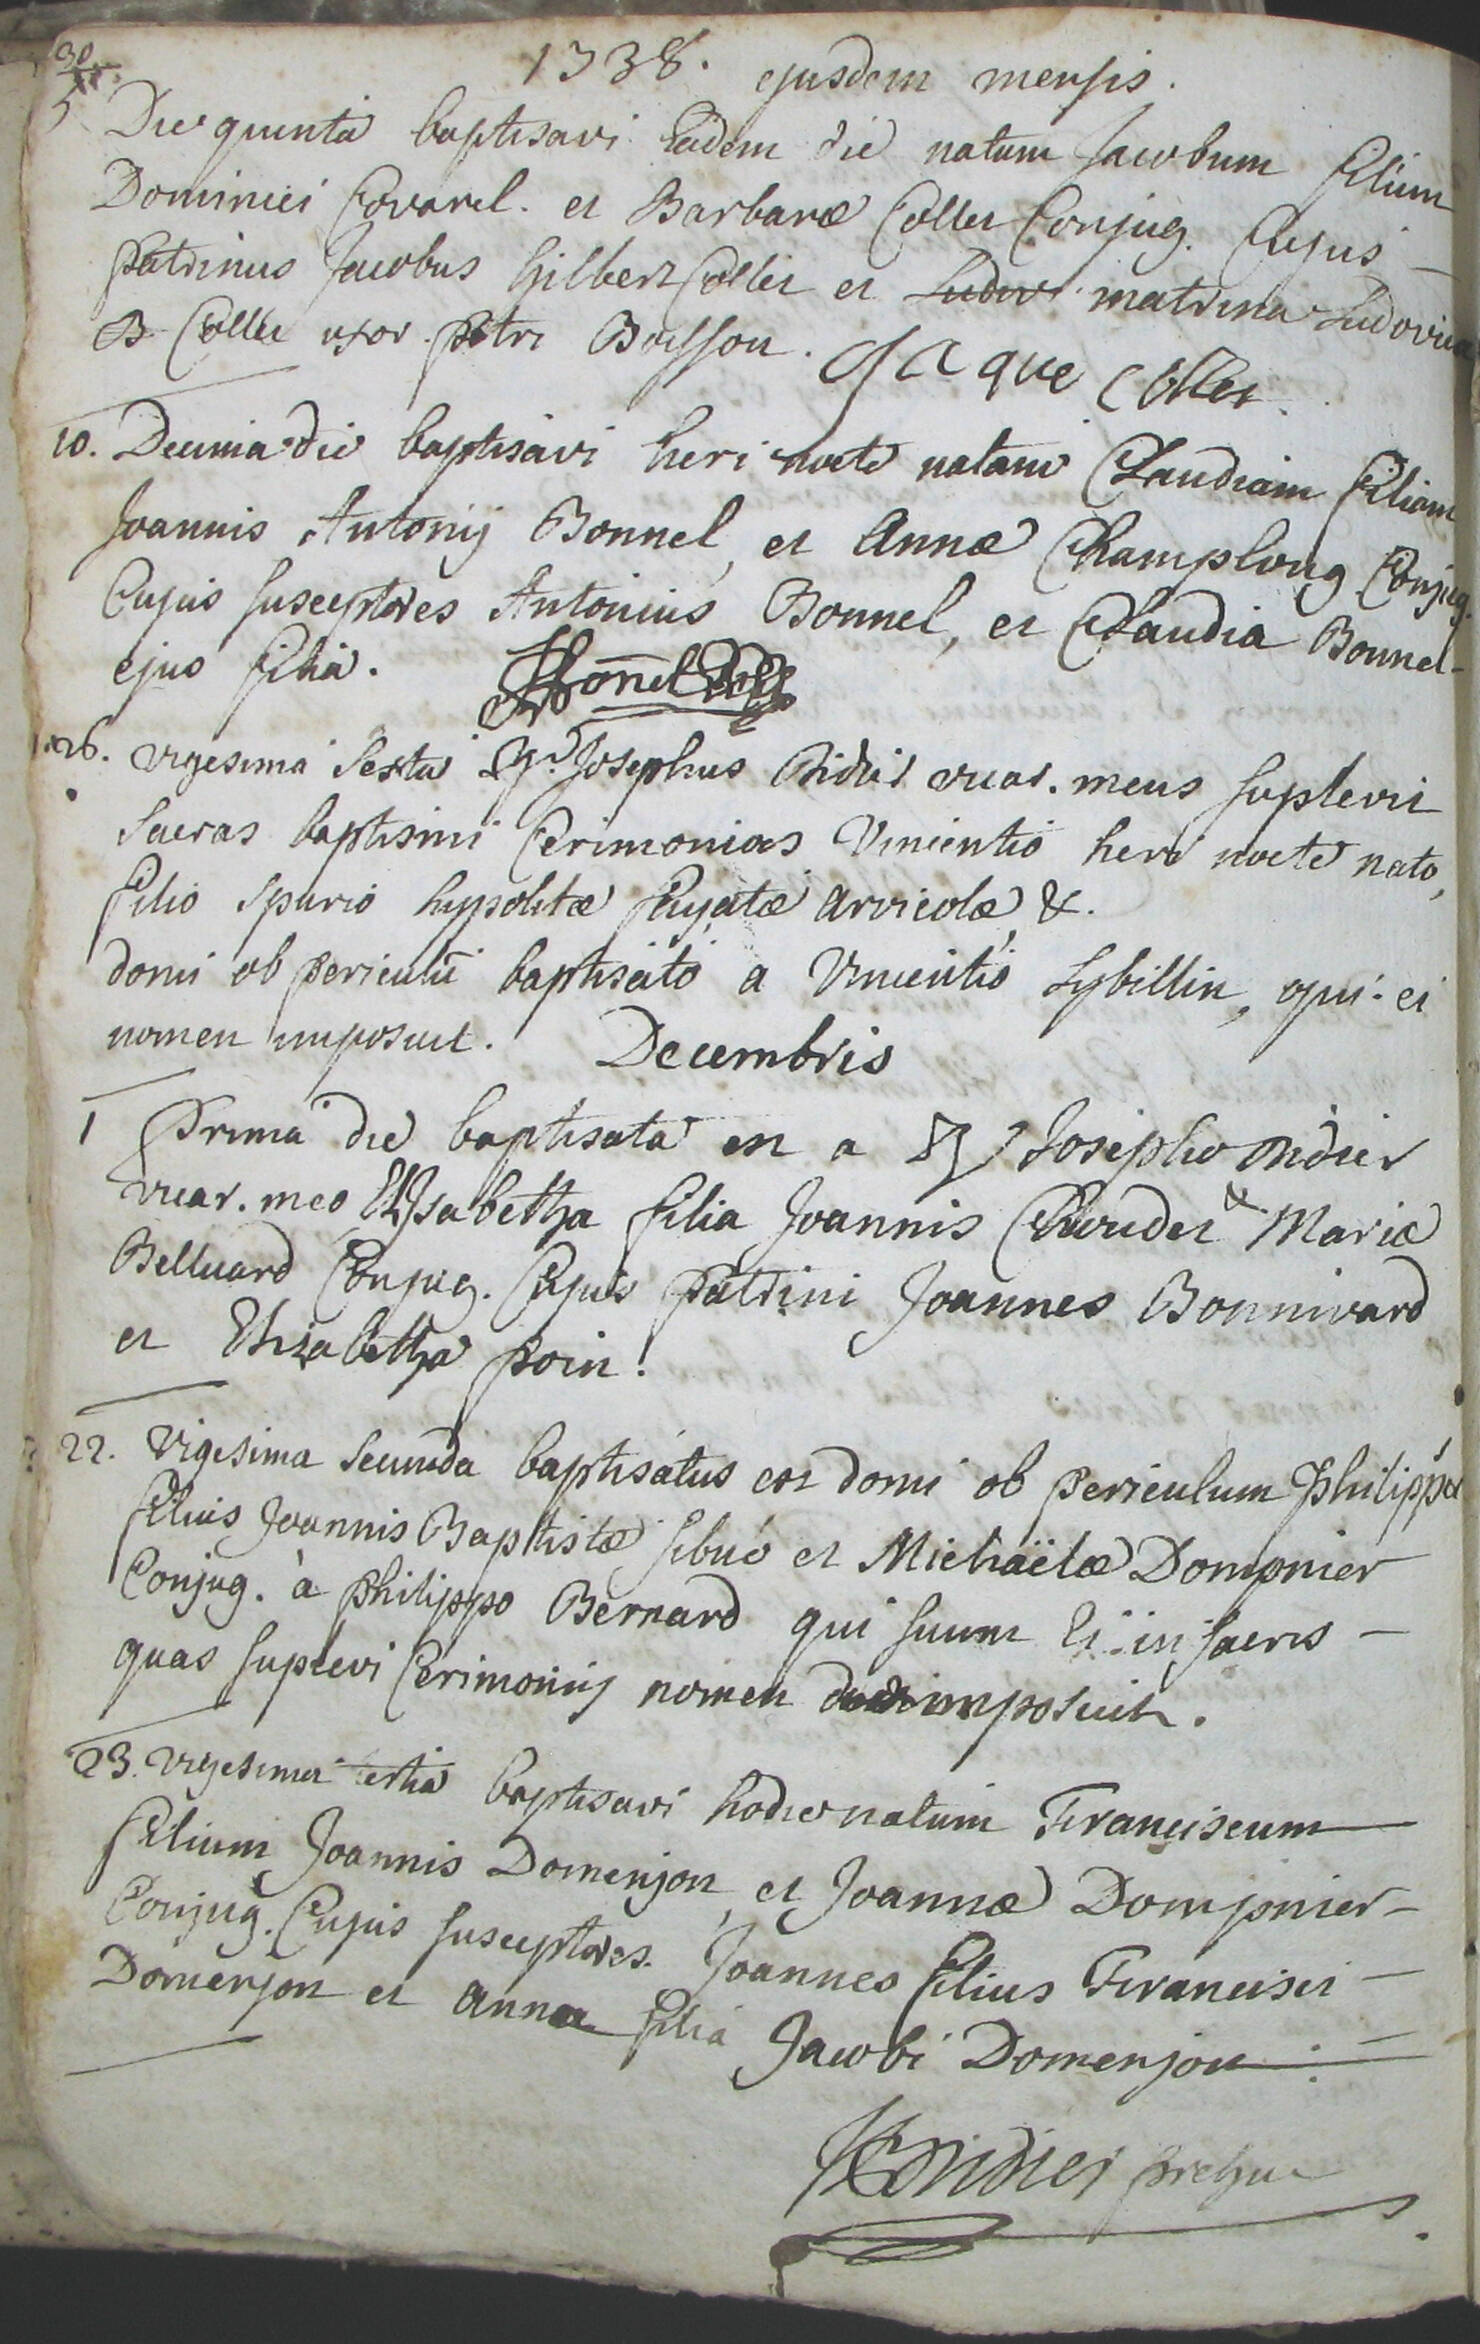 30
1738. ejusdem mensis.
5 Die quinta baptisavi Eadem die natum Jacobum filium
Dominici Covarel. et Barbaræ Collet Conjug. Cujus –
Patrinus Jacobus Gilbert Collet et Ludov matrina Ludovica
B Collet uxor Petri Buisson. Jacque Collet
10. Decima die baptisavi heri nocte natam Claudiam filiam
Joannis Antonij Bonnel, et Annæ Champlong Conjug.
Cujus susceptores Antonius Bonnel, et Claudia Bonnel –
ejus filia. Bonnel
26. vigesima sexta Rd. Josephus Didier vicar. meus suplevit
sacras baptismi Cerimonias Vincentio heri nocte nato,
filio spurio hypolitæ Payatæ arvicolæ &.
domi ob periculū baptisato a Vincentio Sybillin, qui ei
nomen imposuit. Decembris
1 Prima die baptisata est a Rd Josepho Didier
vicar. meo Elysabetha filia Joannis Claudet & Mariæ
Belluard Conjug. Cujus Patrini Joannes Bonnivard
et Elizabetha Poin.
22. Vigesima secunda baptisatus est domi ob periculum Philippus
filius Joannis Baptistæ Sibué et Michaëlæ Dompnier
Conjug. à Philippo Bernard qui suum Ei in sacris –
quas suplevi Cerimonijs nomen imposuit.
23. vigesima tertia baptisavi hodie natum Franciscum
filium Joannis Domenjon, et Joannæ Dompnier –
Conjug. Cujus susceptores. Joannes filius Francisci –
Domenjon et Anna filia Jacobi Domenjon :
Didier